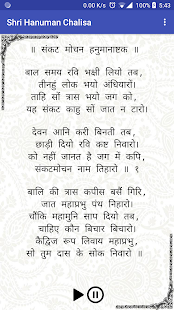 0.02K/s 5:43
Shri Hanuman Chalisa
॥ संकट मोचन हनुमानाष्टक ॥
बाल समय रवि भक्षी लियो तब,
तीनहुं लोक भयो अंधियारों।
ताहि सों त्रास भयो जग को,
यह संकट काहु सों जात न टारो।
देवन आनि करी बिनती तब,
छाड़ी दियो रवि कष्ट निवारो।
को नहीं जानत है जग में कपि,
संकटमोचन नाम तिहारो ॥ १ ॥
बालि की त्रास कपीस बसैं गिरि,
जात महाप्रभु पंथ निहारो।
चौंकि महामुनि साप दियो तब,
चाहिए कौन बिचार बिचारो।
कैद्विज रूप लिवाय महाप्रभु,
सो तुम दास के सोक निवारो ॥